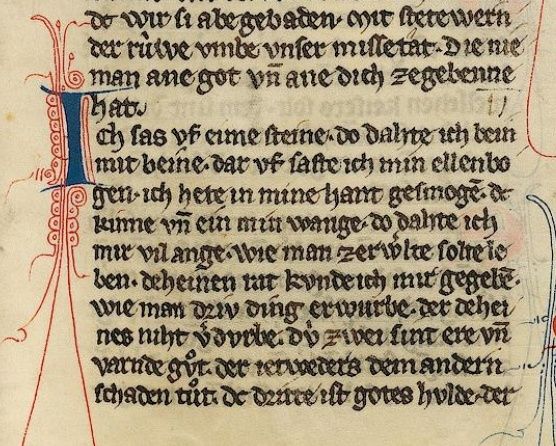 dc wir si abe gebaden· mit stetewern
der růwe vmbe vnser missetat· Die nie
man ane got vn̄ ane dich zegebenne
hat·
Ich sas vf eime steine· do dahte ich bein
mit beine· dar vf saste ich min ellenbo
gen· ich hete in mine hant gesmogē· dc
kinne vn̄ ein min wange· do dahte ich
mir vil ange· wie man zer wͤlte solte le
ben· deheinen rat kvnde ich mir gegebē·
wie man driv ding erwurbe· der dehei
nes niht v̾dvrbe· dv̾ zwei sint ere vn̄
varnde gůt· der ietweders dem andern
schaden tůt· dc dritte ist gotes hvlde· der